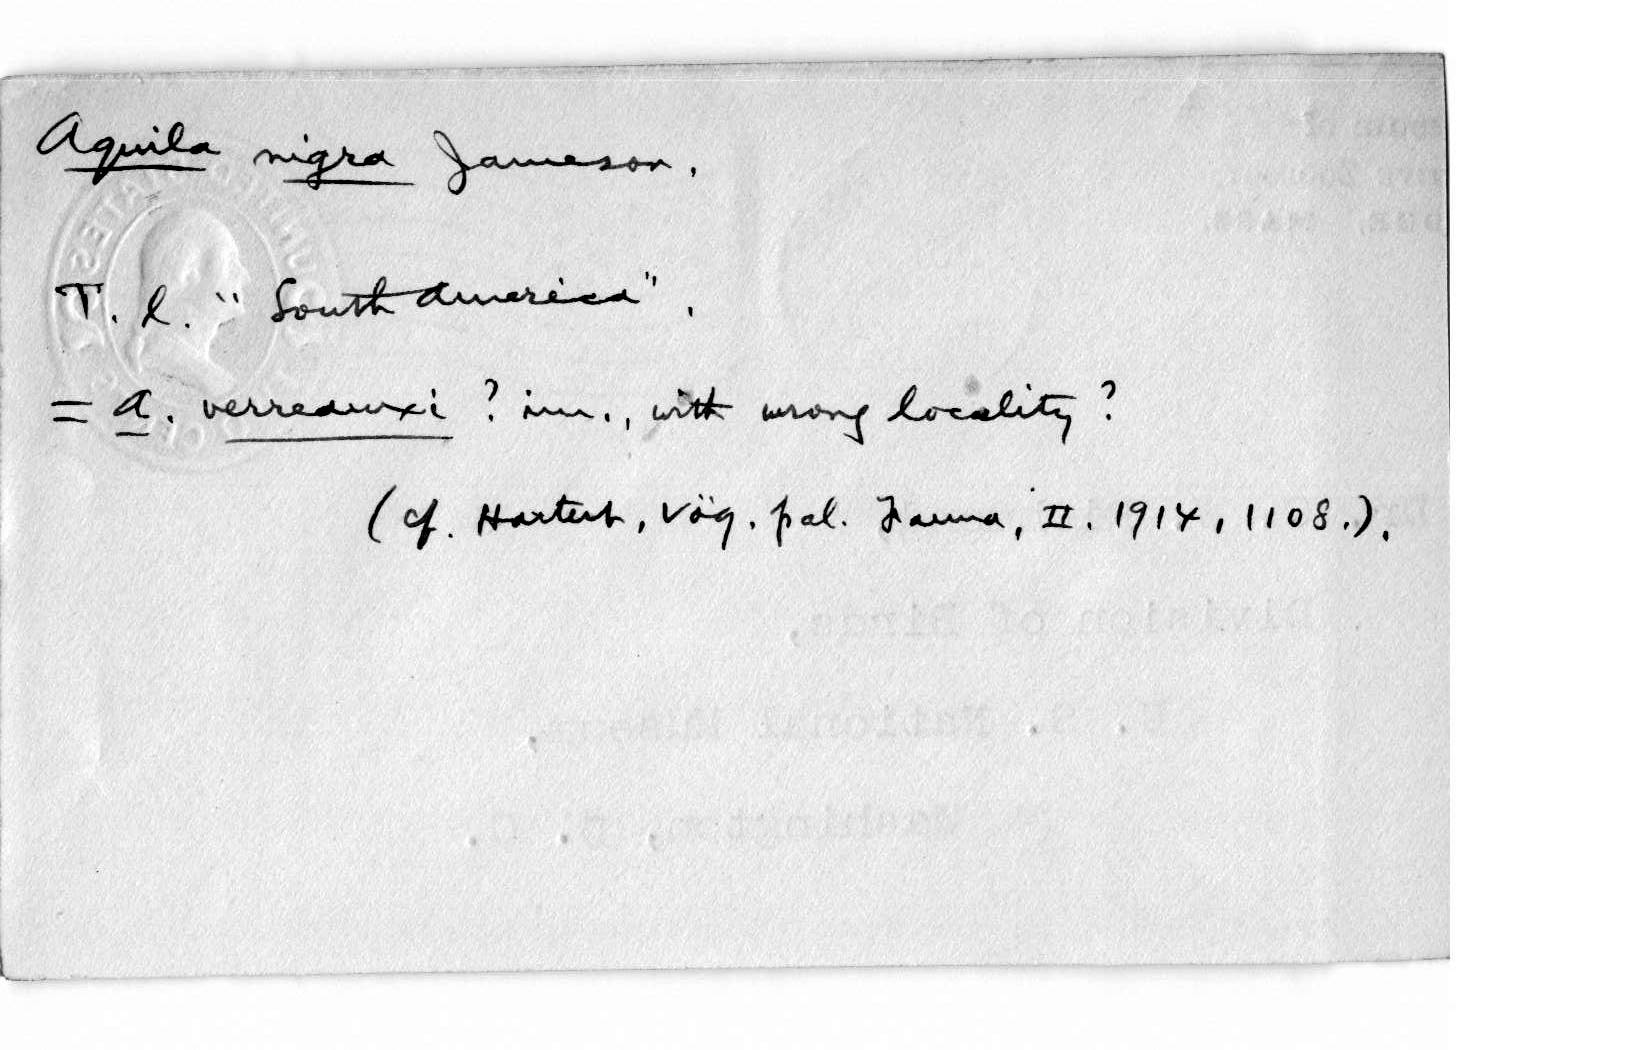 Aquila nigra Jameson.
T. l. "South America".
= A. verreauxi ? imm., with wrong locality ?
(cf. Hartert, Vög. pal. Fauna, II. 1914, 1108.).
Division of Birds,
U. S. National Museum,
Washington, D. C.